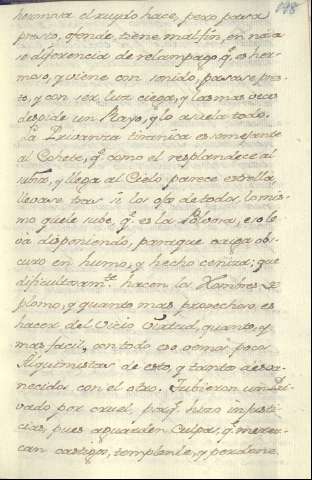 198
hermosa el ruydo hace, pero para
presto, ofende, tiene mal fin, en nada
se diferencia de relampago q.e es her-
moso, y viene con sonido, pasase pres-
to, y con ser luz ciega, y las mas veces
despide un Rayo, q.e lo asuela todo.
La Privanza tiranica es semejante
al Cohete, q.e como el resplandece al
subir, y llega al Cielo parece estrella,
llevase tras si los ojos de todos, lo mis-
mo q.e le sube, q.e es la Polvora, eso le
va disponiendo, para que caiga obs-
curo en humo, y hecho ceniza; que
dificultosam.te hacen los Hombres de
plomo, y quanto mas provechoso es
hacer del Vicio Virtud, quanto, y
mas facil, con todo eso vemos pocos
Alquimistas de esto, y tantos desva-
necidos con el otro. Tubieron un Pri-
vado por cruel, porq.e hizo injusti-
cias, pues aguarden Culpas, q.e merez-
can castigo, templenle, y perdone